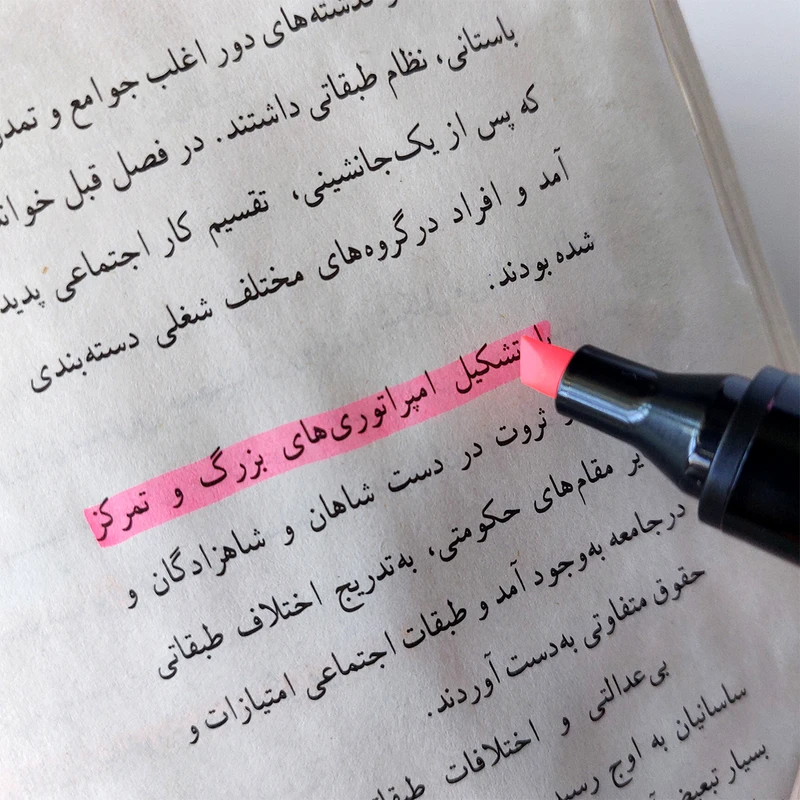 گذشته‌های دور اغلب جوامع و
باستانی، نظام طبقاتی داشتند. در فصل قبل
که پس از یک‌جانشینی، تقسیم کار اجتماعی پدید
آمد و افراد در گروه‌های مختلف شغلی دسته‌بندی
شده بودند:
با تشکیل امپراتوری‌های بزرگ و تمرکز
ثروت در دست شاهان و شاهزادگان و
مقام‌های حکومتی، به‌تدریج اختلاف طبقاتی
در جامعه به‌وجود آمد و طبقات اجتماعی امتیازات و
حقوق متفاوتی به‌دست آوردند.
بی‌عدالتی و اختلافات
ساسانیان به اوج
بسیار